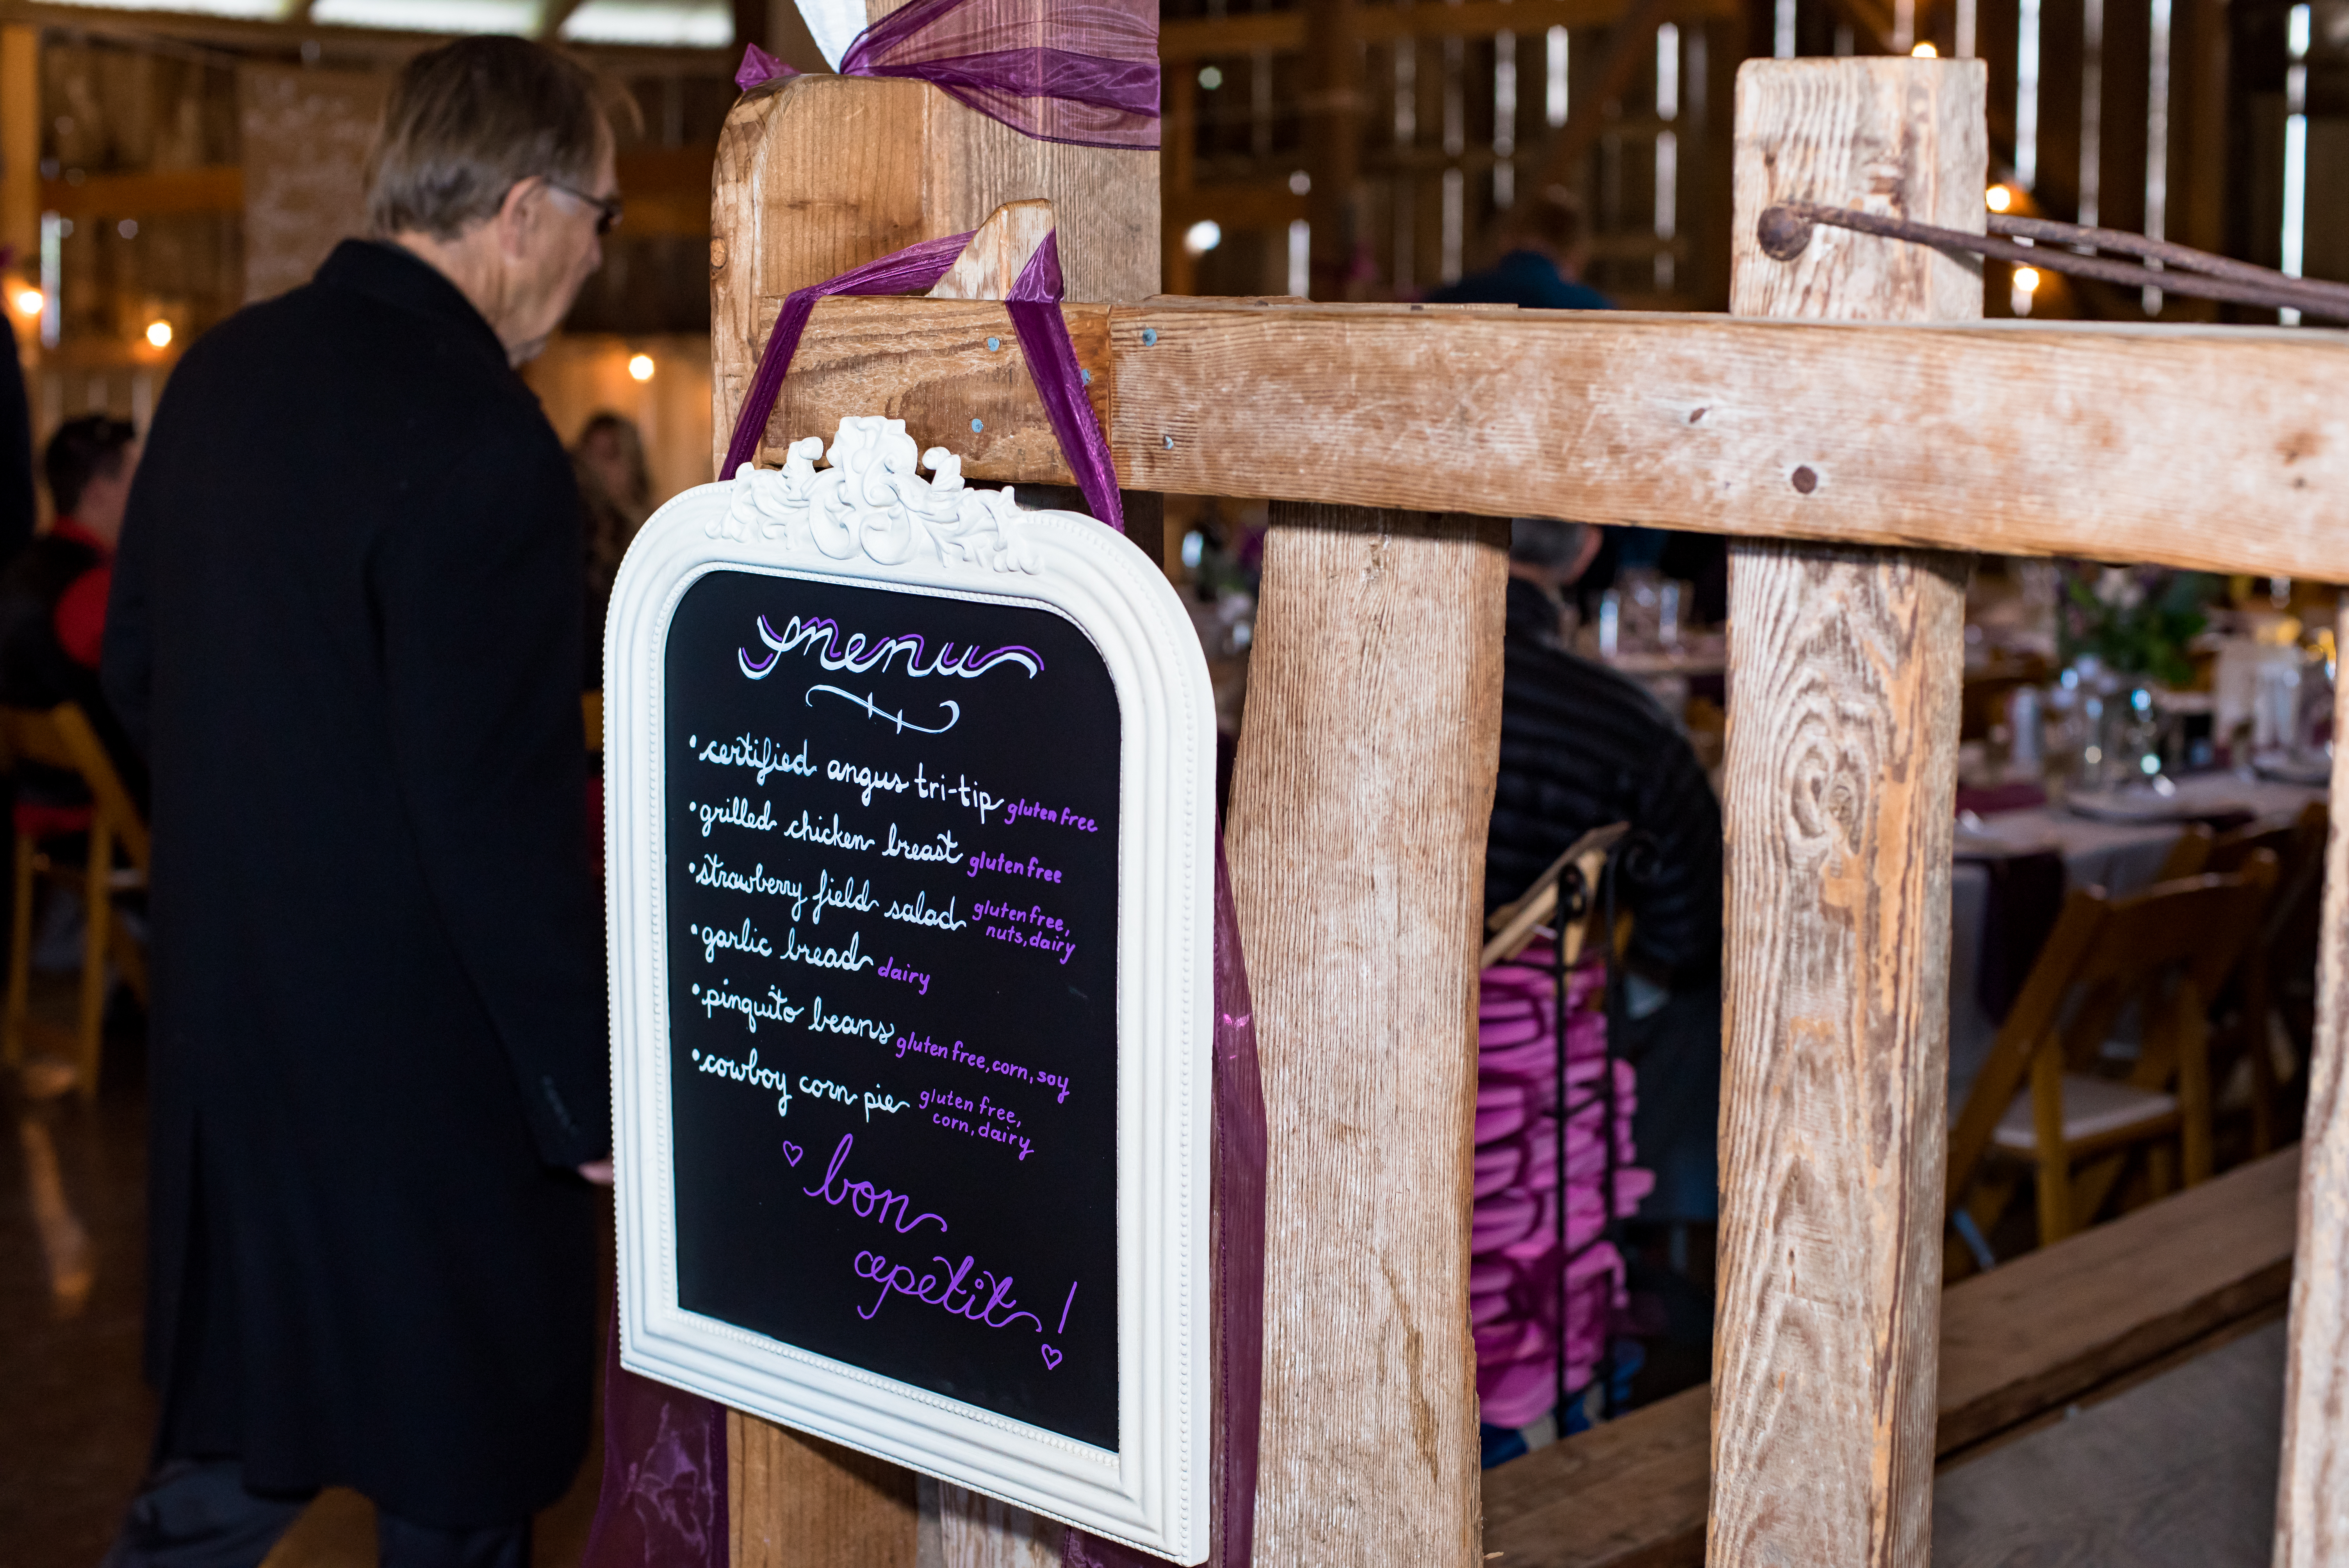 menu
•certified angus tri-tip gluten free
•grilled chicken breast gluten free
•strawberry field salad gluten free,
nuts, dairy
•garlic bread dairy
•pinquito beans gluten free, corn, soy
•cowboy corn pie gluten free,
corn, dairy
♡ bon
apetit! ♡